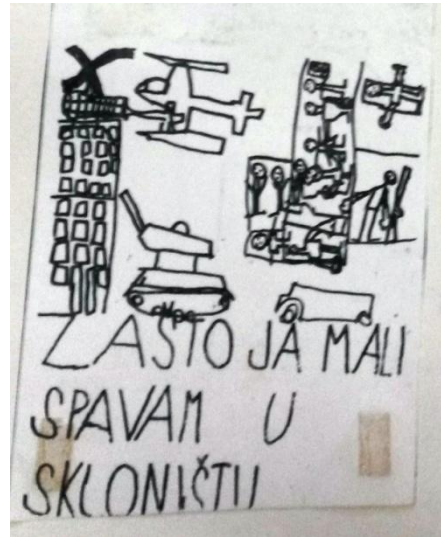 ZAŠTO JA MALI
SPAVAM U
SKLONIČTU